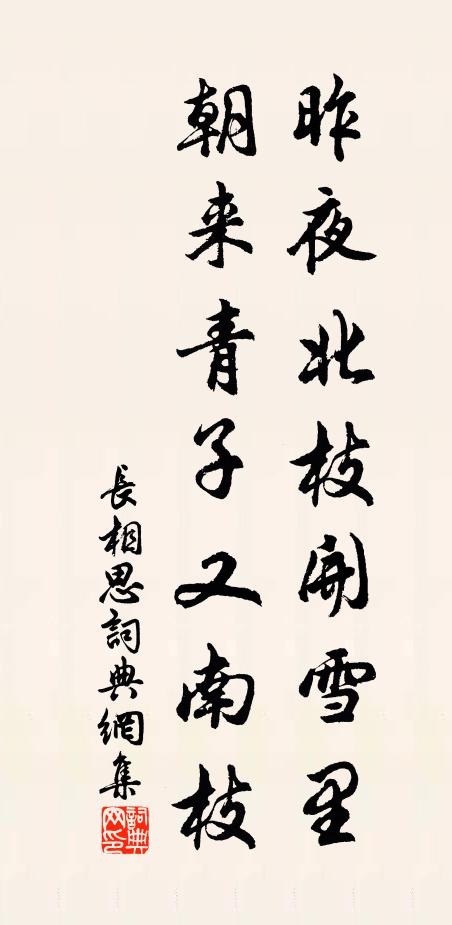 昨夜北枝開雪里
朝来青子又南枝
長相思詞典網集
詞典網印